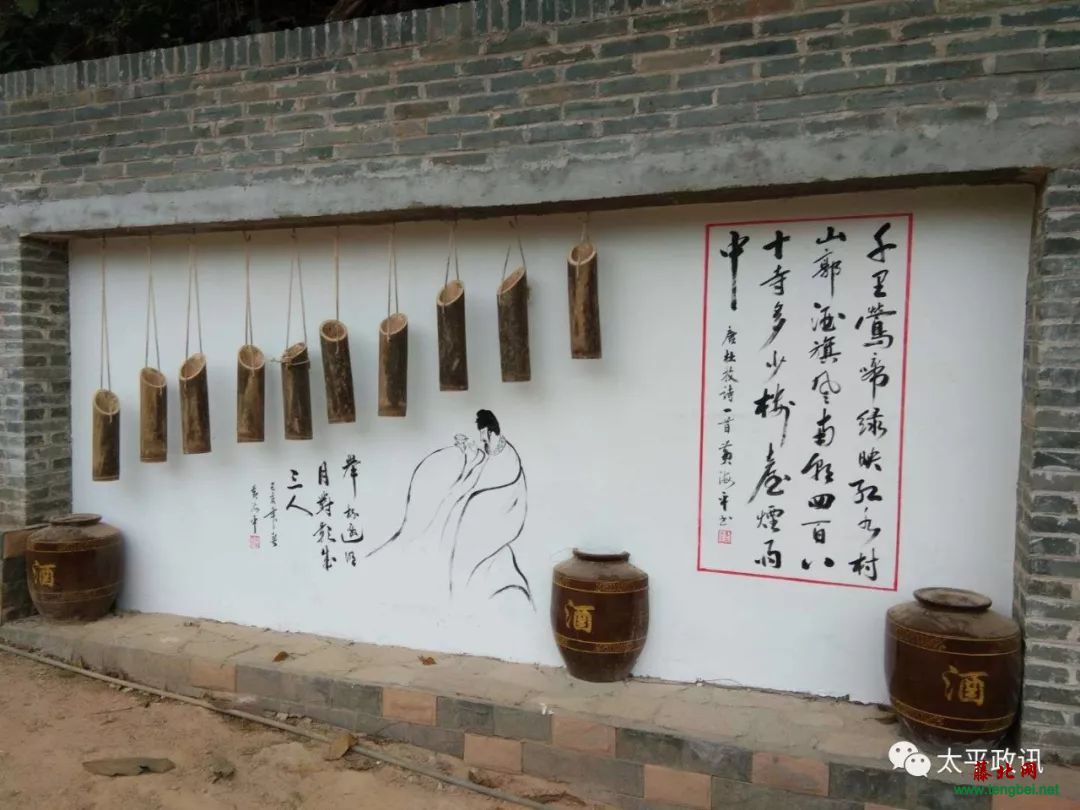 千里鶯啼绿映红水村
山郭酒旗风南朝四百八
十寺多少楼臺煙雨
中
唐杜牧诗一首 黄海平书
举杯邀明
月對影成
三人
己亥年春
黄海平
酒
酒
酒
太平政讯
藤北网
www.tengbei.net